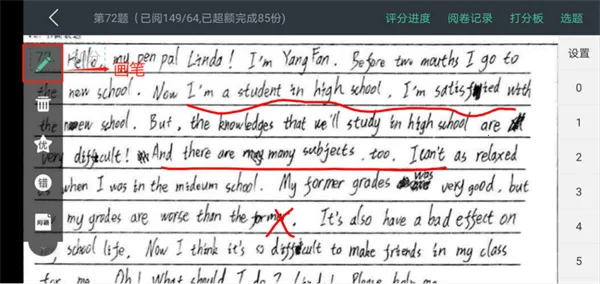 第72题（已阅149/64,已超额完成85份）
评分进度 阅卷记录 打分板 选题
画笔
优
错
问题
设置
0
1
2
3
4
5
Hello, my pen pal Linda! I'm Yang Fan. Before two mouths I go to
the new school. Now I'm a student in high school, I'm satisfied with
the new school. But, the knowledges that we'll study in high school are
very difficult! And there are many subjects, too. I can't as relaxed
as when I was in the mideum school. My former grades was very good, but
my grades are worse than the former. It's also have a bad effect on
school life. Now I think it's so difficult to make friends in my class
for me. Oh! What should I do? Please help me